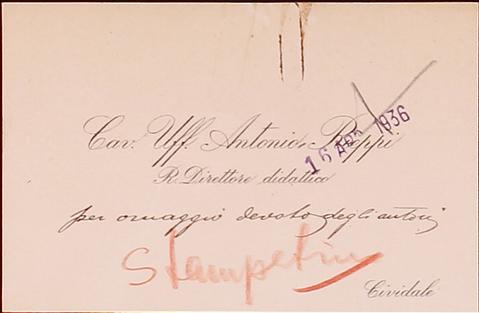 Cav. Uff. Antonio Rieppi
16 APR 1936
R. Direttore didattico
per omaggio devoto degli autori
Stampetiny
Cividale